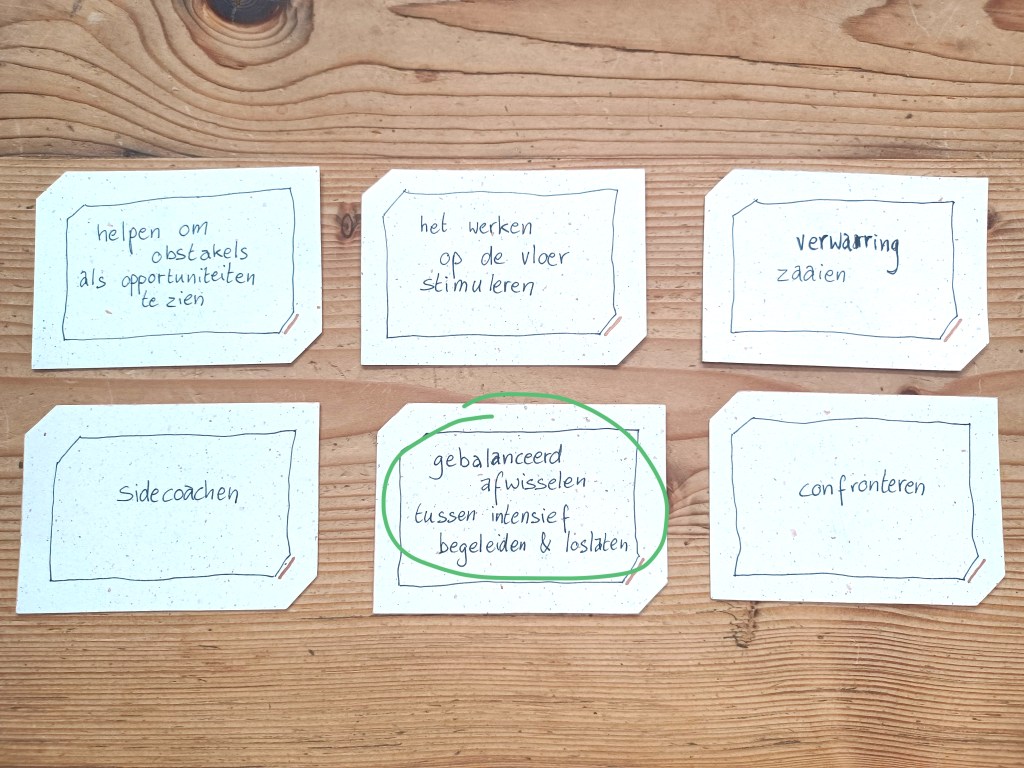 helpen om
obstakels
als opportuniteiten
te zien
het werken
op de vloer
stimuleren
verwarring
zaaien
sidecoachen
gebalanceerd
afwisselen
tussen intensief
begeleiden & loslaten
confronteren